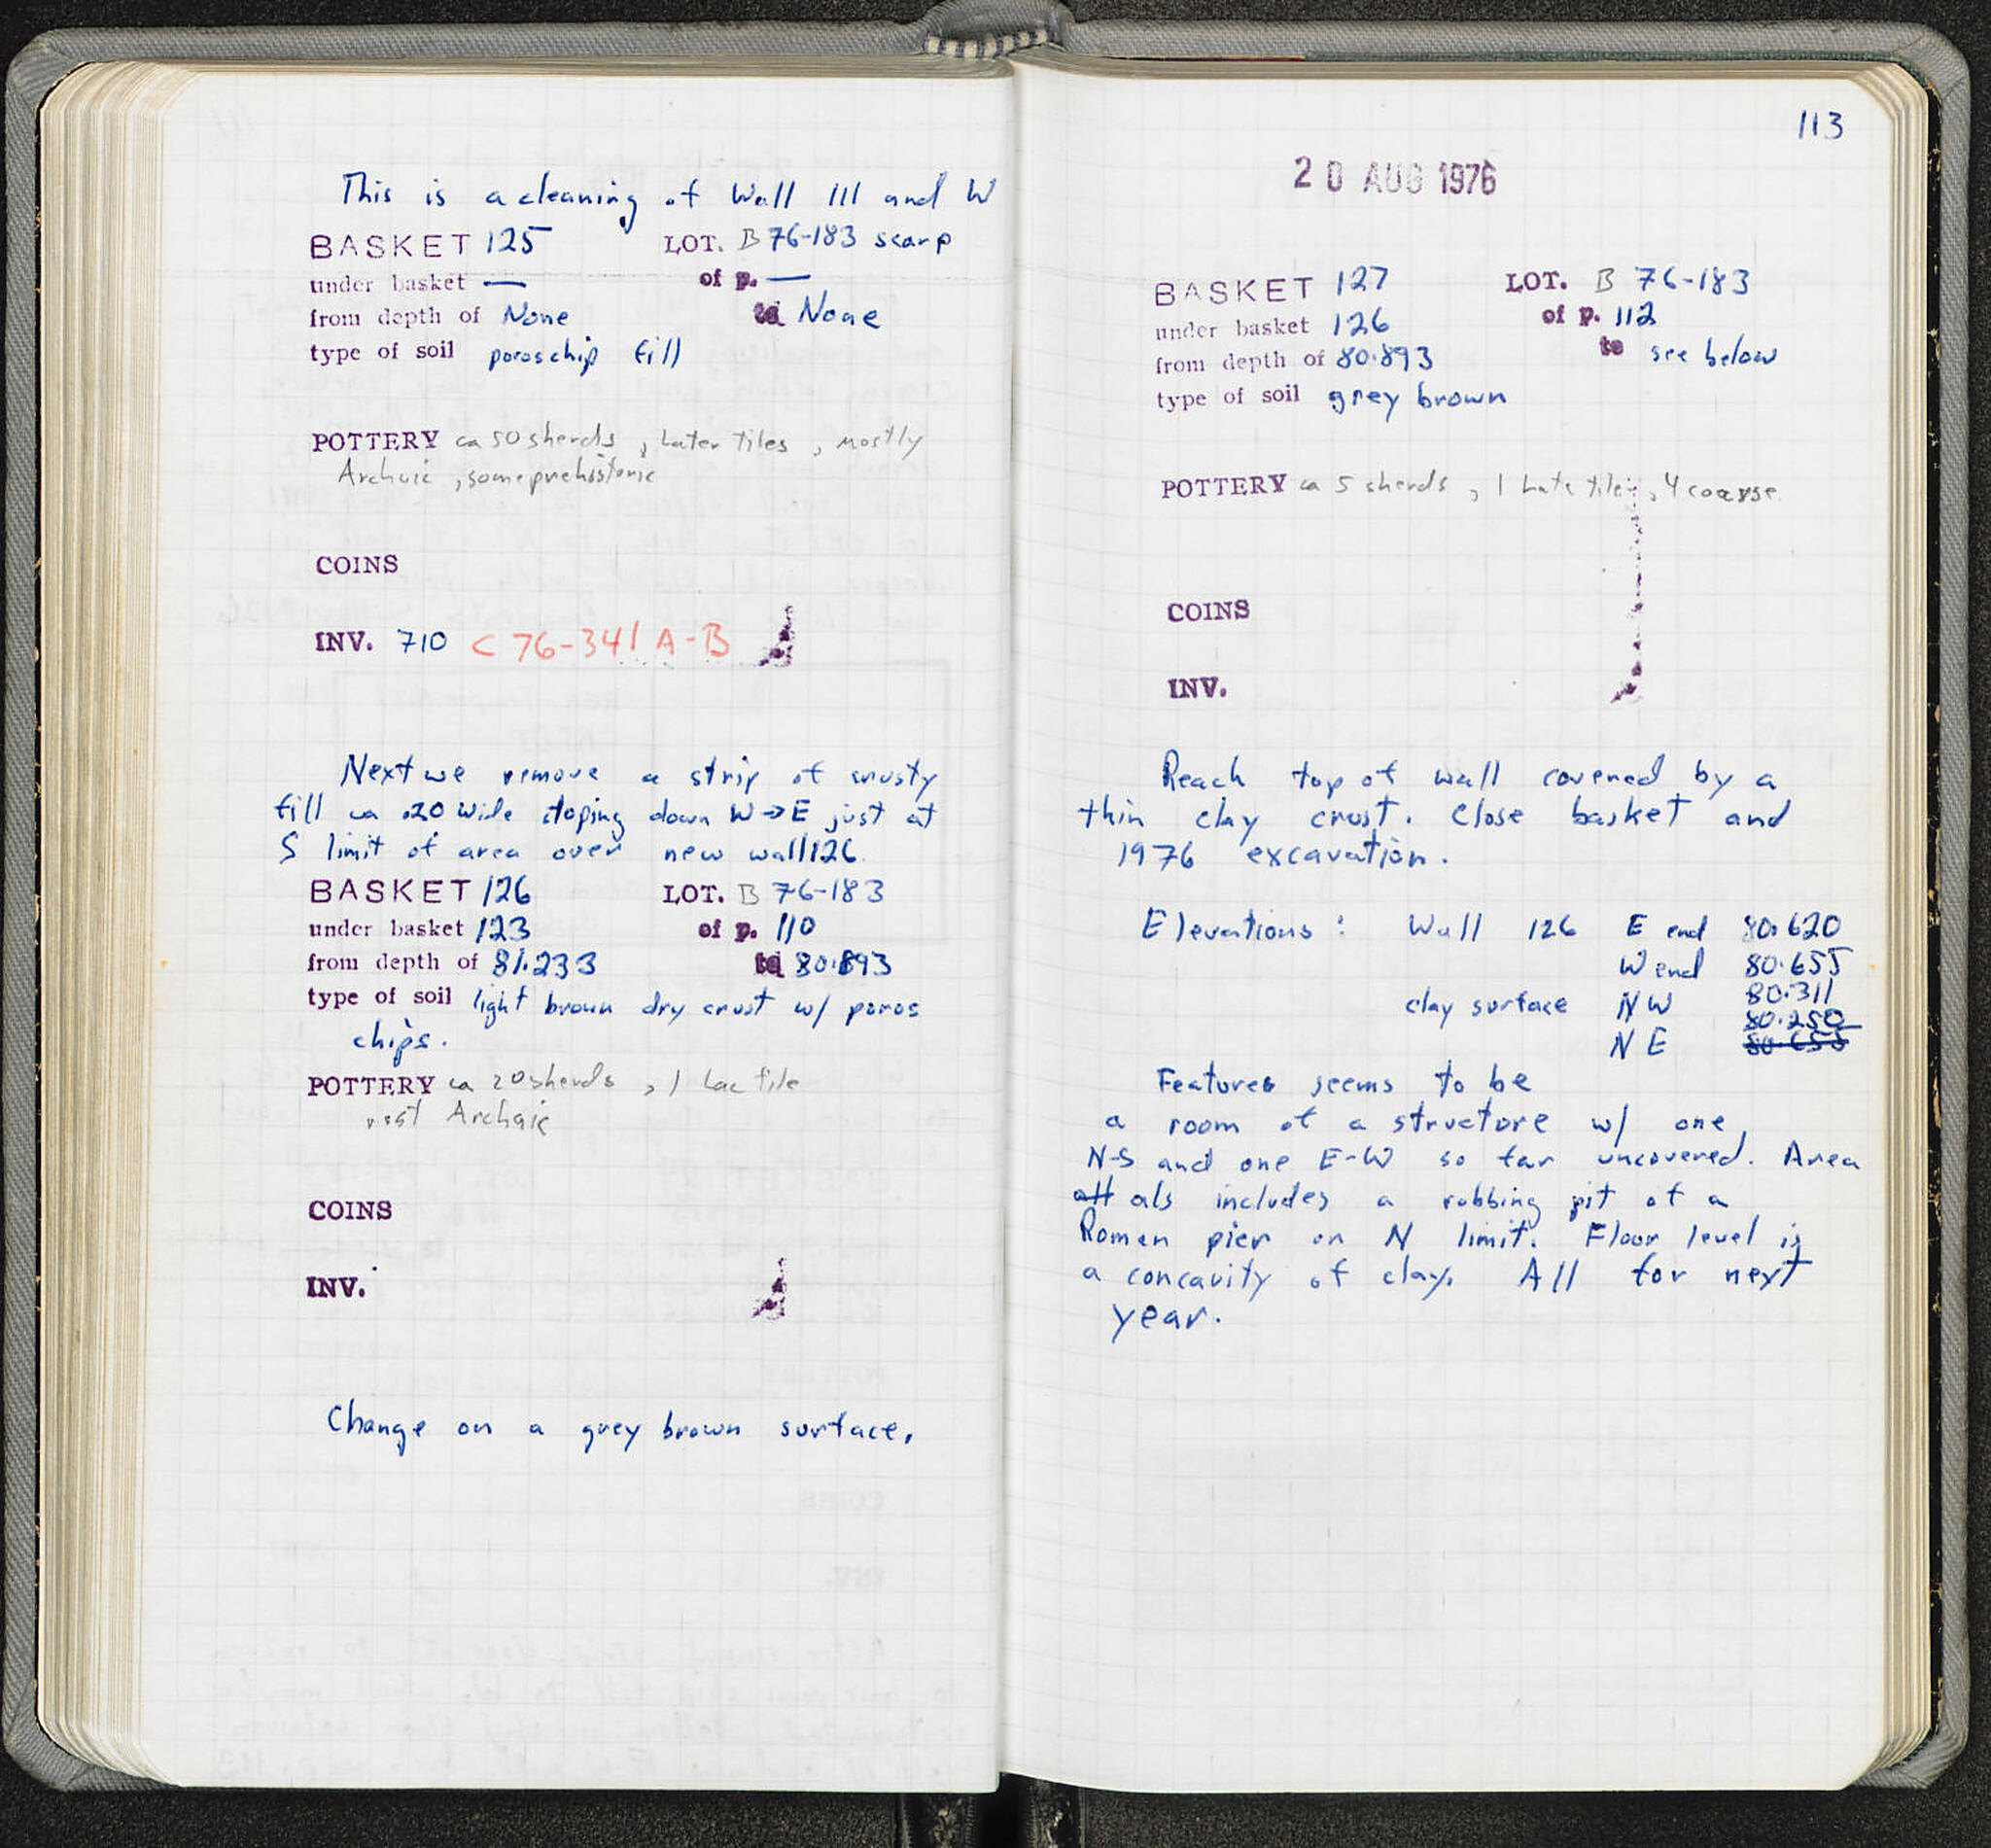 This is a cleaning of Wall 111 and W
BASKET 125 LOT. B 76-183 scarp
under basket — of p. —
from depth of None to None
type of soil poros chip fill
POTTERY ca 50 sherds, Later tiles, mostly
Archaic, some prehistoric
COINS
INV. 710 C 76-341 A-B
Next we remove a strip of crusty
fill ca .20 wide sloping down W→E just at
S limit of area over new wall 126.
BASKET 126 LOT. B 76-183
under basket 123 of p. 110
from depth of 81.233 to 80.893
type of soil light brown dry crust w/ poros
chips.
POTTERY ca 20 sherds, 1 Lac tile
rest Archaic
COINS
INV.
Change on a grey brown surface.
113
20 AUG 1976
BASKET 127 LOT. B 76-183
under basket 126 of p. 112
from depth of 80.893 to see below
type of soil grey brown
POTTERY ca 5 sherds, 1 Late tile, 4 coarse
COINS
INV.
Reach top of wall covered by a
thin clay crust. Close basket and
1976 excavation.
Elevations: Wall 126 E end 80.620
W end 80.655
clay surface NW 80.311
80.250
NE 80.655
Features seems to be
a room of a structure w/ one
N-S and one E-W so far uncovered. Area
als includes a robbing pit of a
Roman pier on N limit. Floor level is
a concavity of clay. All for next
year.